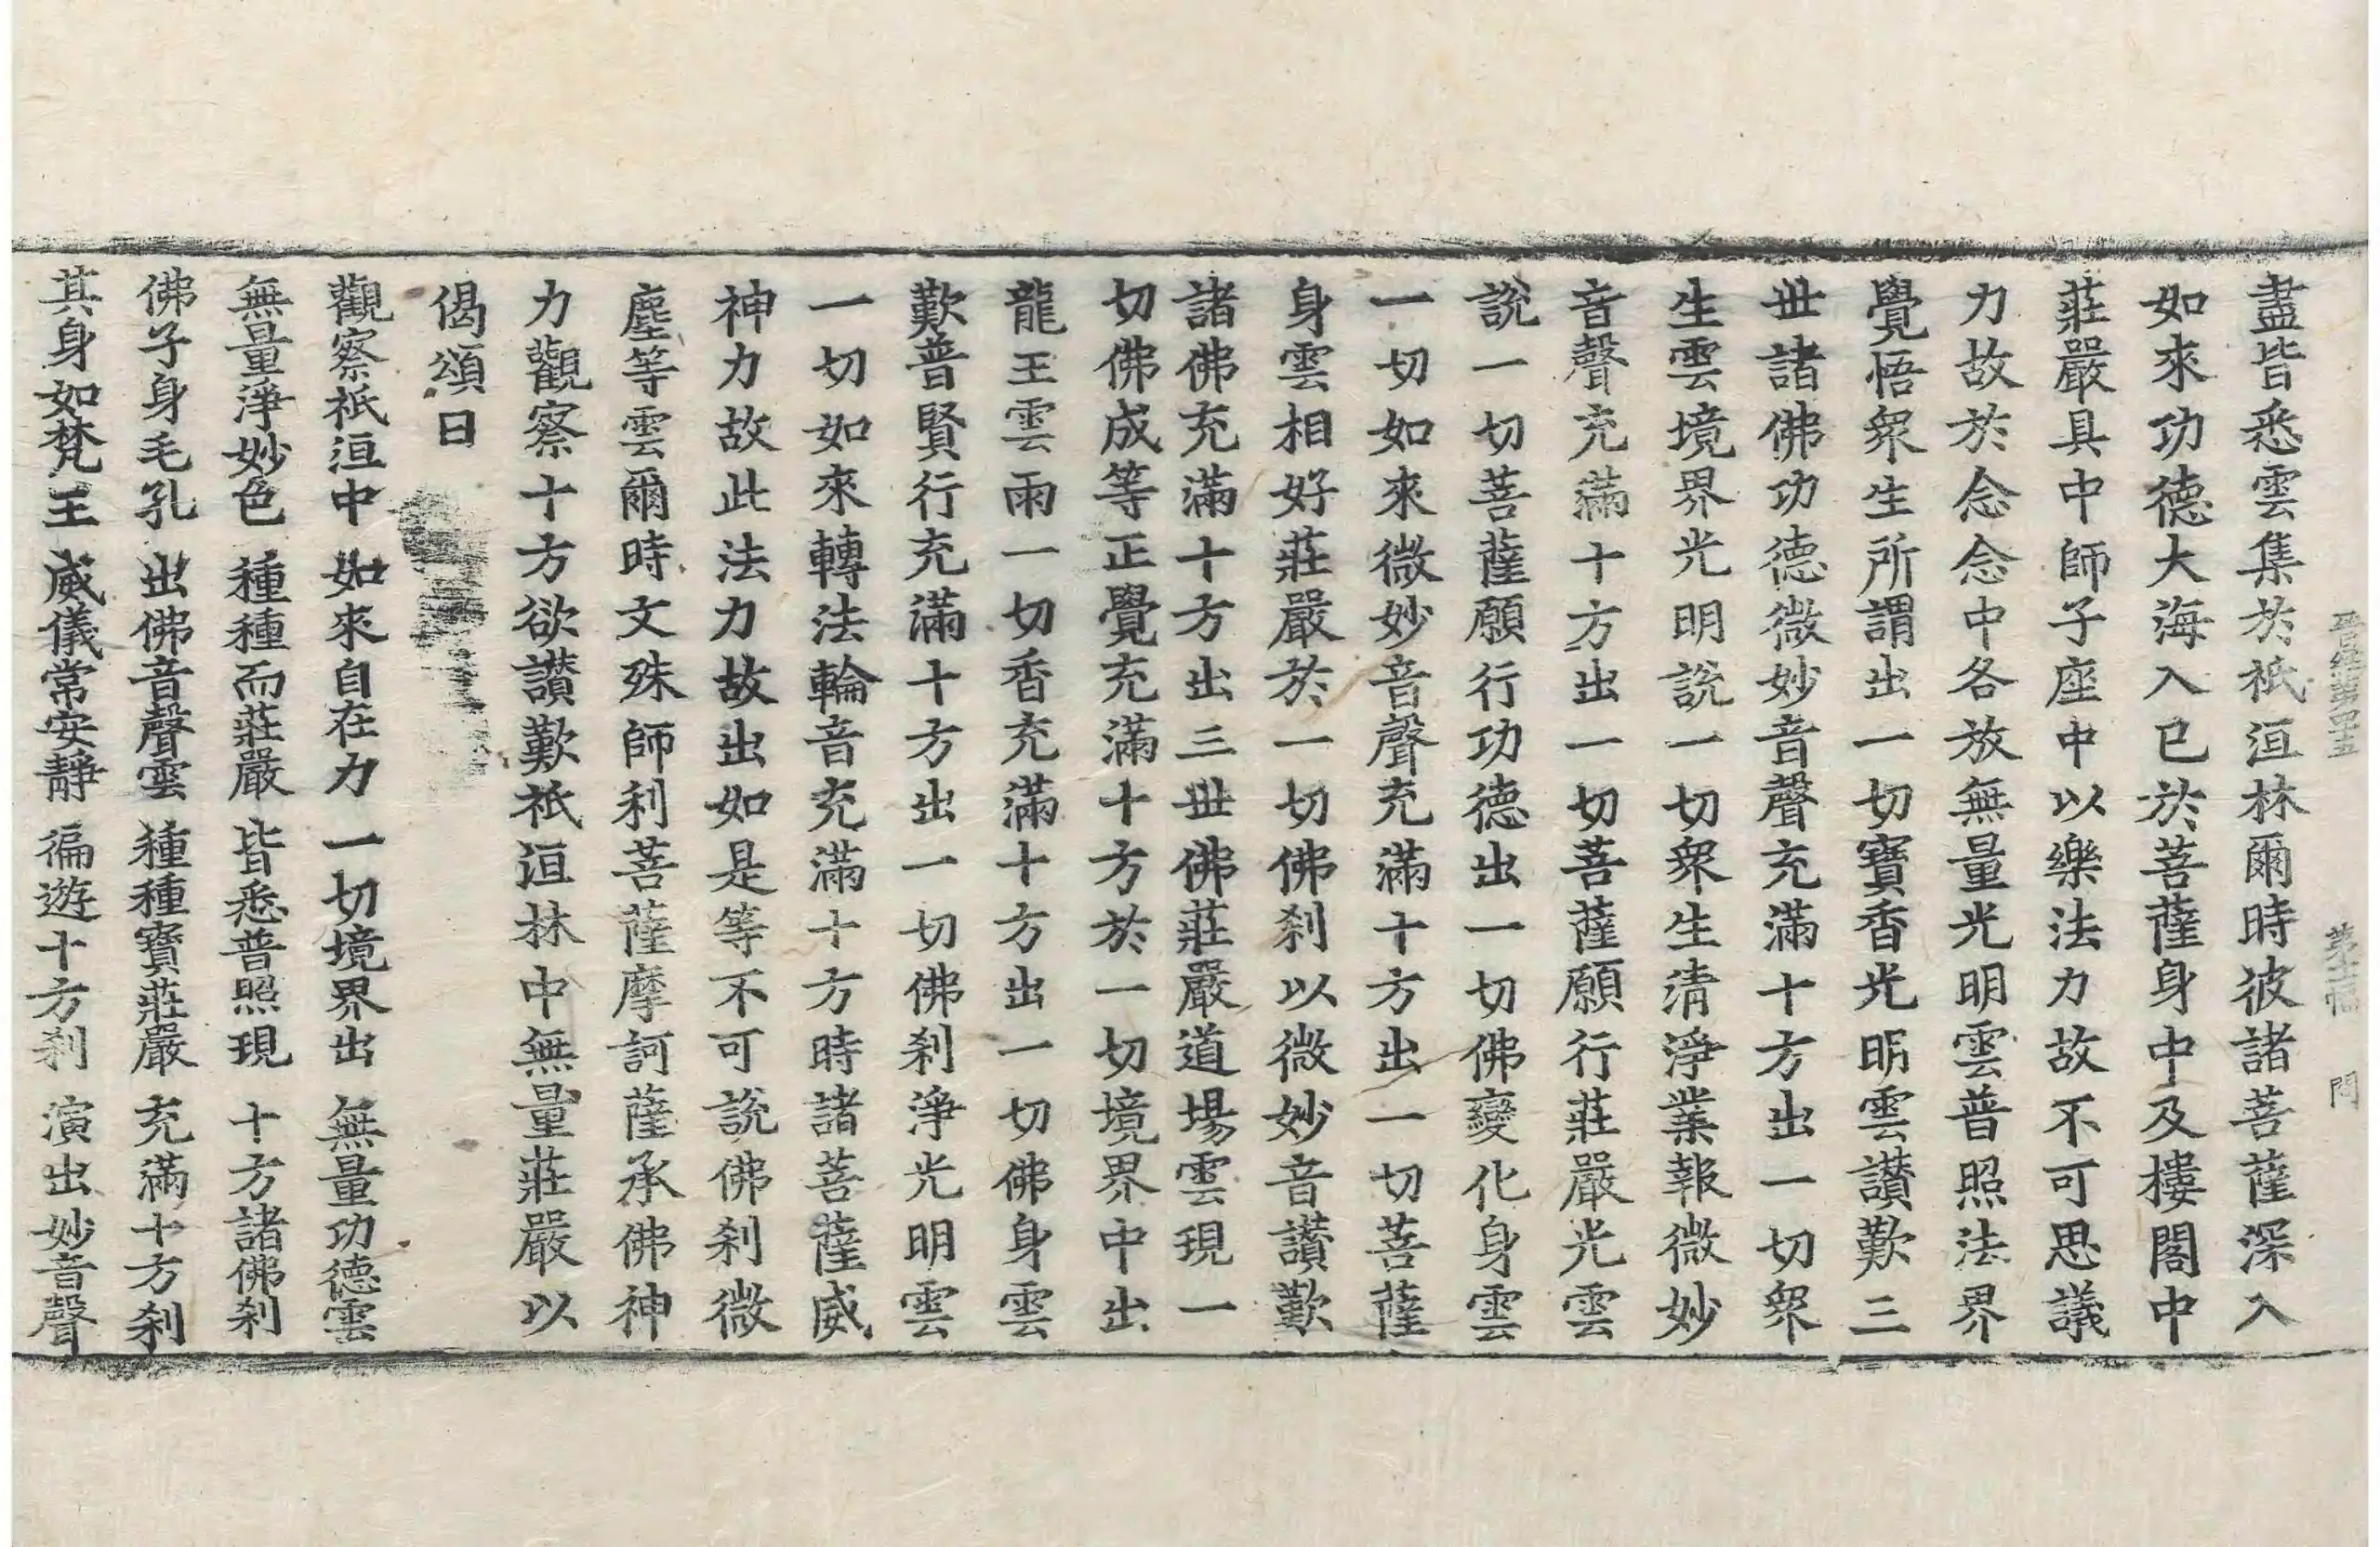 晋經第四十五 第十二幅 門
盡皆悉雲集於祇洹林爾時彼諸菩薩深入
如來功德大海入已於菩薩身中及樓閣中
莊嚴具中師子座中以樂法力故不可思議
力故於念念中各放無量光明雲普照法界
覺悟衆生所謂出一切寶香光明雲讃歎三
世諸佛功德微妙音聲充滿十方出一切衆
生雲境界光明說一切衆生清淨業報微妙
音聲充滿十方出一切菩薩願行莊嚴光雲
說一切菩薩願行功德出一切佛變化身雲
一切如來微妙音聲充滿十方出一切菩薩
身雲相好莊嚴於一切佛刹以微妙音讃歎
諸佛充滿十方出三世佛莊嚴道場雲現一
切佛成等正覺充滿十方於一切境界中出
龍王雲雨一切香充滿十方出一切佛身雲
歎普賢行充滿十方出一切佛刹淨光明雲
一切如來轉法輪音充滿十方時諸菩薩威
神力故此法力故出如是等不可說佛刹微
塵等雲爾時文殊師利菩薩摩訶薩承佛神
力觀察十方欲讃歎祇洹林中無量莊嚴以
偈頌曰
觀察祇洹中 如來自在力 一切境界出 無量功德雲
無量淨妙色 種種而莊嚴 皆悉普照現 十方諸佛刹
佛子身毛孔 出佛音聲雲 種種寶莊嚴 充滿十方刹
其身如梵王 威儀常安靜 徧遊十方刹 演出妙音聲